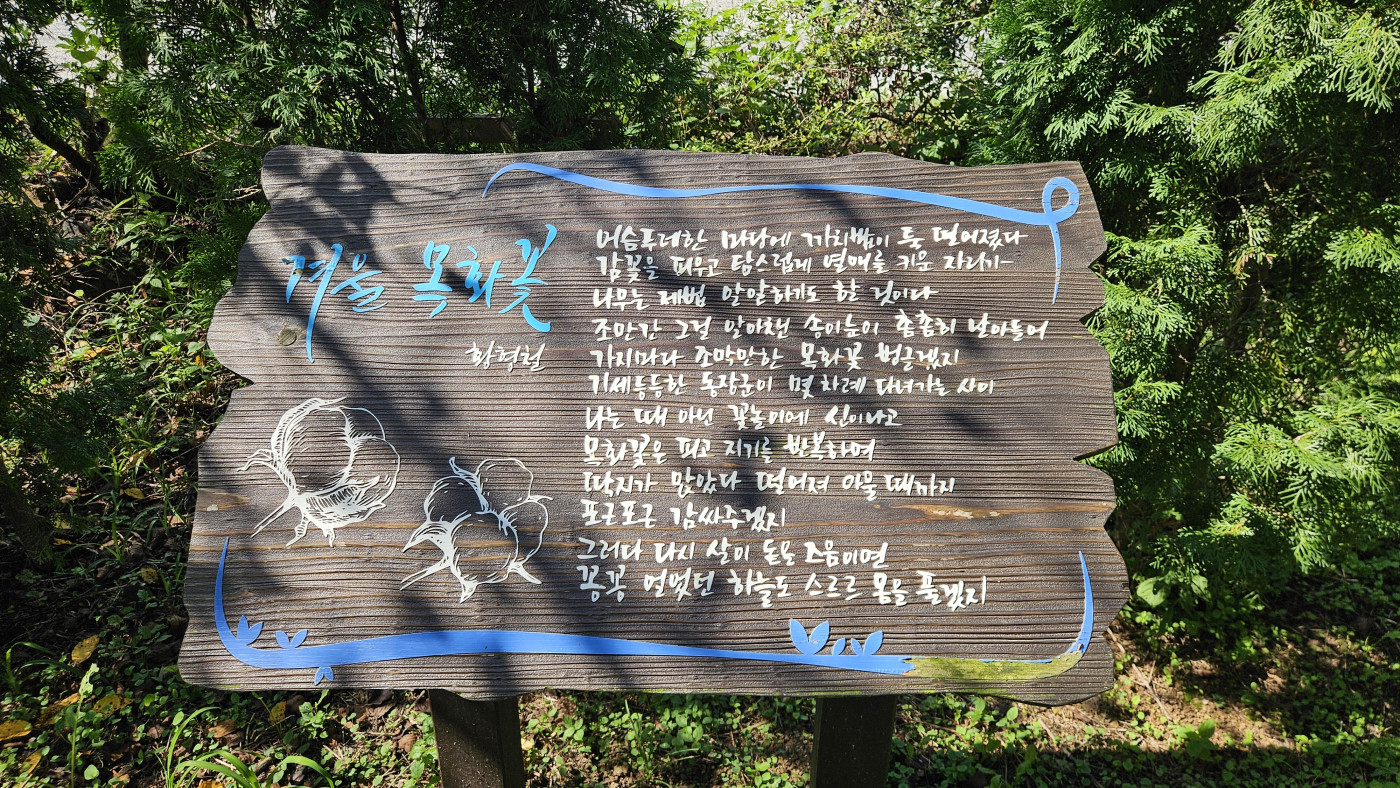 겨울 목화꽃
황형철
어슴푸레한 마당에 까치밥이 툭 떨어졌다
감꽃을 피우고 탐스럽게 열매를 키운 자리가
나무는 제법 알알하기도 할 것이다
조만간 그걸 알아챈 송이눈이 촘촘히 날아들어
가지마다 조막만한 목화꽃 벙글겠지
기세등등한 동장군이 몇 차례 다녀가는 사이
나는 때 아닌 꽃놀이에 신이나고
목화꽃은 피고 지기를 반복하며
딱지가 앉았다 떨어져 아물 때까지
포근포근 감싸주겠지
그러다 다시 살이 돋을 즈음이면
꽁꽁 얼었던 하늘도 스르르 몸을 풀겠지